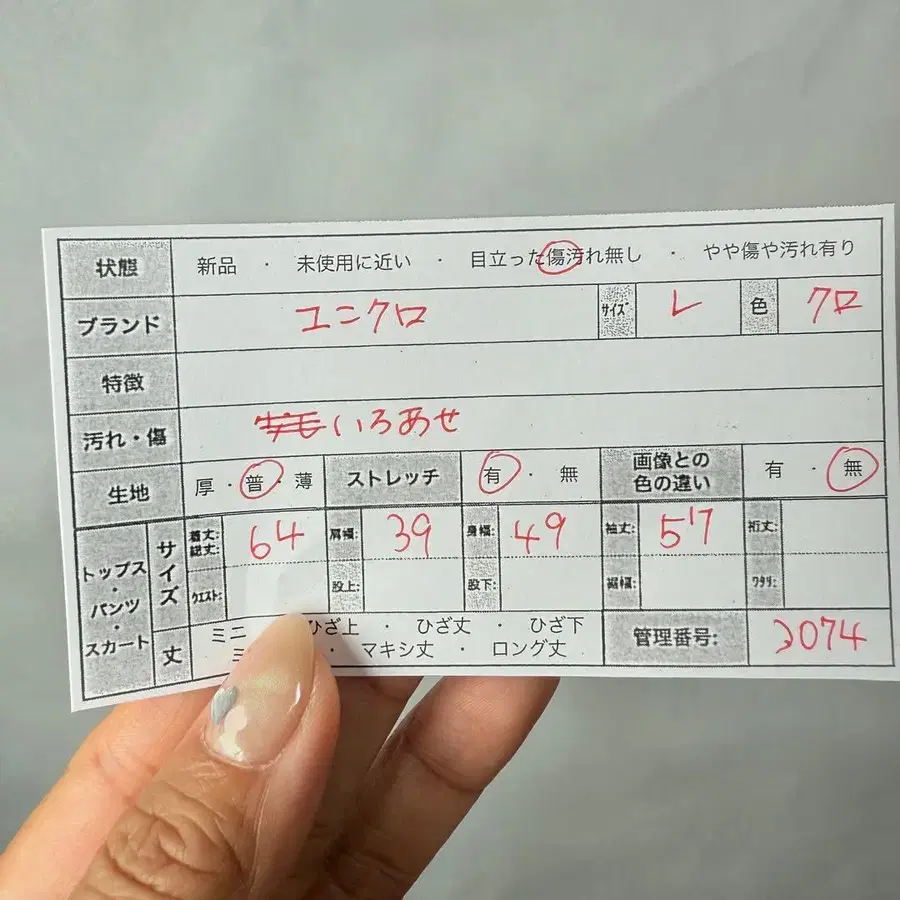 状態 新品 ・ 未使用に近い ・ 目立った傷汚れ無し ・ やや傷や汚れ有り
ブランド ユニクロ サイズ L 色 クロ
特徴
汚れ・傷 いろあせ
生地 厚・普・薄 ストレッチ 有・無 画像との色の違い 有・無
トップス・パンツ・スカート サイズ 着丈:総丈: 64 肩幅: 39 身幅: 49 袖丈: 57 裄丈:
ウエスト: 股上: 股下: 裾幅: ワタリ:
丈 ミニ ひざ上 ・ ひざ丈 ・ ひざ下
ミ ・ マキシ丈 ・ ロング丈 管理番号: 2074